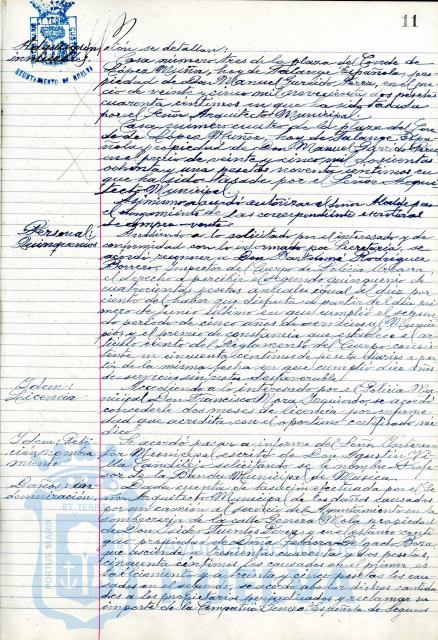 11
Adquisición
inmuebles.
AYUNTAMIENTO DE HUELVA
ción se detallan:
Casa número tres de la plaza del Conde de
López Muñoz, hoy de Falange Española, pro-
piedad de Don Manuel Garrido Pérez, en el pre-
cio de veinte y cinco mil novecientas pesetas
cuarenta céntimos en que ha sido tasada
por el Señor Arquitecto Municipal.
Casa número cuatro de la plaza del Con-
de de López Muñoz, hoy de Falange Espa-
ñola propiedad de Don Manuel Garrido Pérez
en el precio de veinte y cinco mil doscientos
ochenta y una pesetas noventa céntimos en
que ha sido tasada por el Señor Arqui-
tecto Municipal.
Asimismo acordó autorizar al Señor Alcalde para
el otorgamiento de las correspondientes escrituras
de compra-venta.
Personal:
Quinquenios
Accediendo a lo solicitado por el interesado y de
conformidad con lo informado por Secretaría, se
acordó reconocer a Don Bartolomé Rodríguez
Borrero, Inspector del Cuerpo de Policía Urbana,
el derecho a percibir el segundo quinquenio de
cuatrocientas pesetas anuales igual al diez por
ciento del haber que disfruta a partir del día pri-
mero de junio último en que cumplió el segun-
do período de cinco años de servicios al Munici-
pio, y el premio de constancia que establece el ar-
tículo ciento del Reglamento del Cuerpo consis-
tente en cincuenta céntimos de peseta diarios a par-
tir de la misma fecha en que cumplió diez años
de servicio sin nota desfavorable.
Idem:
Licencia
Accediendo a lo interesado por el Policía Mu-
nicipal Don Francisco Mora Izquierdo, se acordó
concederle dos meses de licencia por enferme-
dad que acredita con el oportuno certificado mé-
dico.
Idem: Peti-
ción nombra-
miento
Se acordó pasar a informe del Señor Interven-
tor Municipal escrito de Don Agustín Vi-
lla Candilejo solicitando se le nombre Profe-
sor de la Banda Municipal de Música.
Daños: in-
demnización
Dada cuenta de tasación efectuada por el Se-
ñor Arquitecto Municipal de los daños causados
por un camión al servicio del Ayuntamiento en la
calle General Mola propiedad
de Don José Fuentes Pérez y en
que propiedad de Don
que asciende a seiscientas cuarenta y dos pesetas,
cincuenta céntimos los causados en el primer es-
tablecimiento y a treinta y cinco pesetas los cau-
sados en el segundo, se acordó abonar dichas cantida-
des a los propietarios perjudicados y reclamar su
importe de la Compañía General Española de Seguros